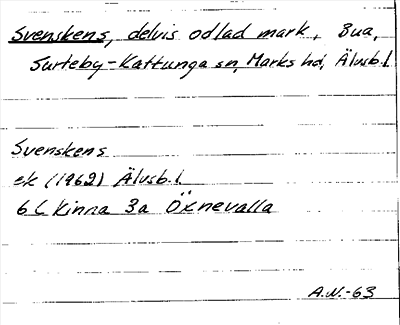 Svenskens, delvis odlad mark, Bua,
Surteby-Kattunga sn, Marks hd, Älvsb.l.
Svenskens
ek (1962) Älvsb.l.
6 C Kinna 3a Öxnevalla
A.N.-63